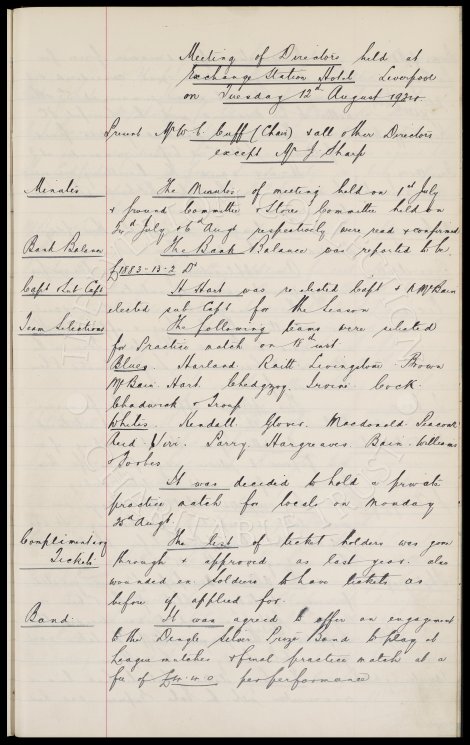 Meeting of Directors held at
Exchange Station Hotel Liverpool
on Tuesday 12th August 1924.
Present Mr W. C. Cuff (Chair) & all other Directors
except Mr J. Sharp
Minutes The Minutes of meeting held on 1st July
& Ground Committee & Store Committee held on
July & 6th Augt respectively were read & confirmed
Bank Balance The Bank Balance was reported to be
£1883-13-2 Dr
Capt & Sub Capt H Hart was re-elected Capt & N McBain
elected sub Capt for the Season
Team Selections The following teams were selected
for Practice match on 18th inst
Blues. Harland Raitt Livingstone Brown
McBain Hart Chedgzoy Irvine Cock
Chadwick & Troup
Whites, Kendall Glover. Macdonald Peacock
Reid Virr. Parry Hargreaves Bain Williams
& Forbes
It was decided to hold a private
practice match for locals on Monday
25th Augt
Complimentary The list of ticket holders was gone
Tickets through & approved as last year. also
wounded ex Soldiers to have tickets as
before if applied for.
Band. It was agreed to offer an engagement
to the Dingle Silver Prize Band to play at
League matches & final practice match at a
fee of per performance